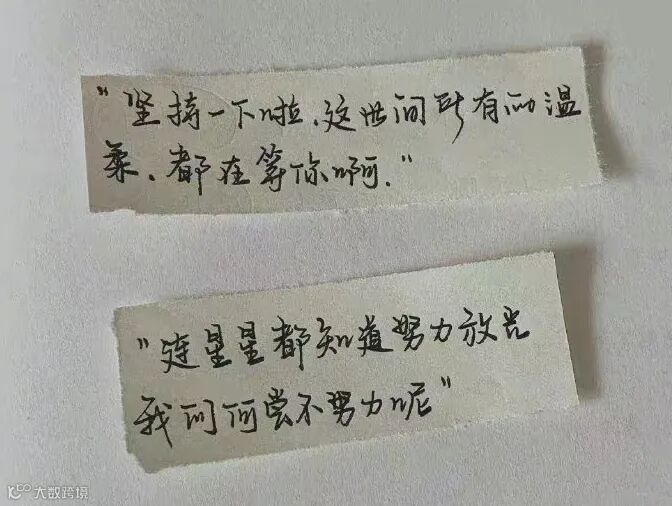 "坚持一下啦,这世间所有的温
柔,都在等你啊."
"连星星都知道努力放光
我们何尝不努力呢"
大数跨境